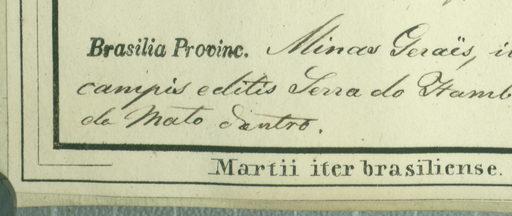 Brasilia Provinc. Minas Geraës, in
campis editis Serra do
do Mato dentro.
Martii iter brasiliense.